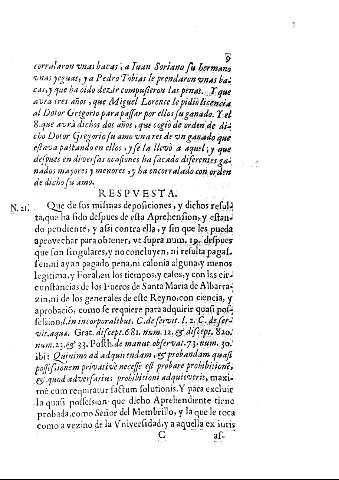 9
corralaron vnas bacas; a Iuan Soriano su hermano
vnas yeguas, y a Pedro Tobias le prendaron vnas ba-
cas, y que ha oido dezir compusieron las penas. Y que
avra tres años, que Miguel Lorente le pidiò licencia
al Dotor Gregorio para passar por ellos su ganado. Y el
8. que avrà dichos dos años, que cogiò de orden de di-
cho Dotor Gregorio su amo vna res de vn ganado que
estava pastando en ellos, y se la llevò a aquel; y que
despues en diversas ocasiones ha sacado diferentes ga-
nados mayores y menores, y ha encorralado con orden
de dicho su amo.
RESPVESTA.
N. 21. Que de sus mismas deposiciones, y dichos resul-
ta, que ha sido despues de esta Aprehension, y estan-
do pendiente, y assi contra ella, y sin que les pueda
aprovechar para obtener, vt supra num. 19. despues
que son singulares, y no concluyen, ni resulta pagas-
sen, ni ayan pagado pena, ni calonia alguna, y menos
legitima, y Foral, en los tiempos, y casos, y con las cir-
cunstancias de los Fueros de Santa Maria de Albarra-
zin, ni de los generales de este Reyno, con ciencia, y
aprobació, como se requiere para adquirir quasi pos-
session, l. in incorporalibus, C. de servit. l. 2. C. de ser-
vit. aqua. Grat. discept. 681. num. 12. & discept. 820.
num. 23. & 33. Posth. de manut. observat. 73. num. 30.
ibi: Quinimo ad adquirendam, & probandam quasi
possissionem privativè necesse est probare prohibitionē,
& quod adversarius prohibitioni adquieverit, maxi-
mè cum requiratur factum solutionis. Y para excluir
la quasi possession que dicho Aprehendiente tiene
probada como Señor del Membrillo, y la que le toca
como a vezino de la Vniversidad, y a aquella ex iuris
C as-